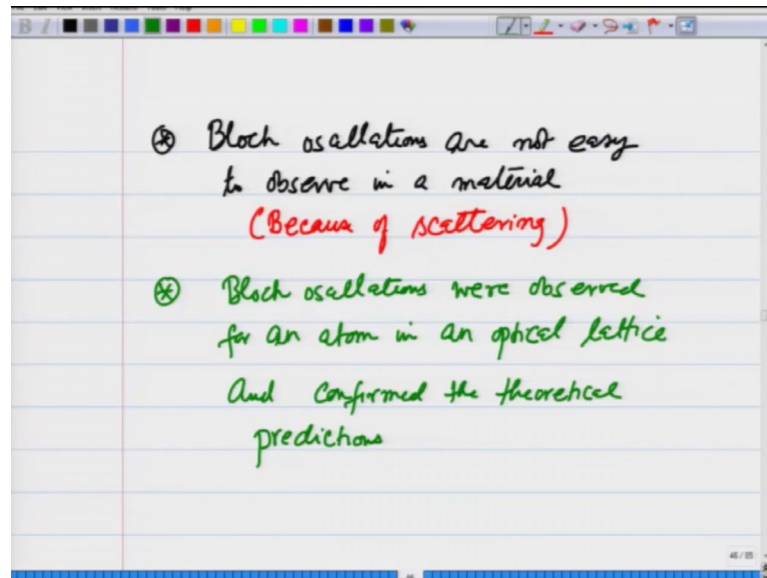 ⊛ Bloch osallations are not easy
to observe in a material
(Becaus of scattering)
⊛ Bloch osallations were observed
for an atom in an optical lattice
And confirmed the theoretical
predictions
46 / 55